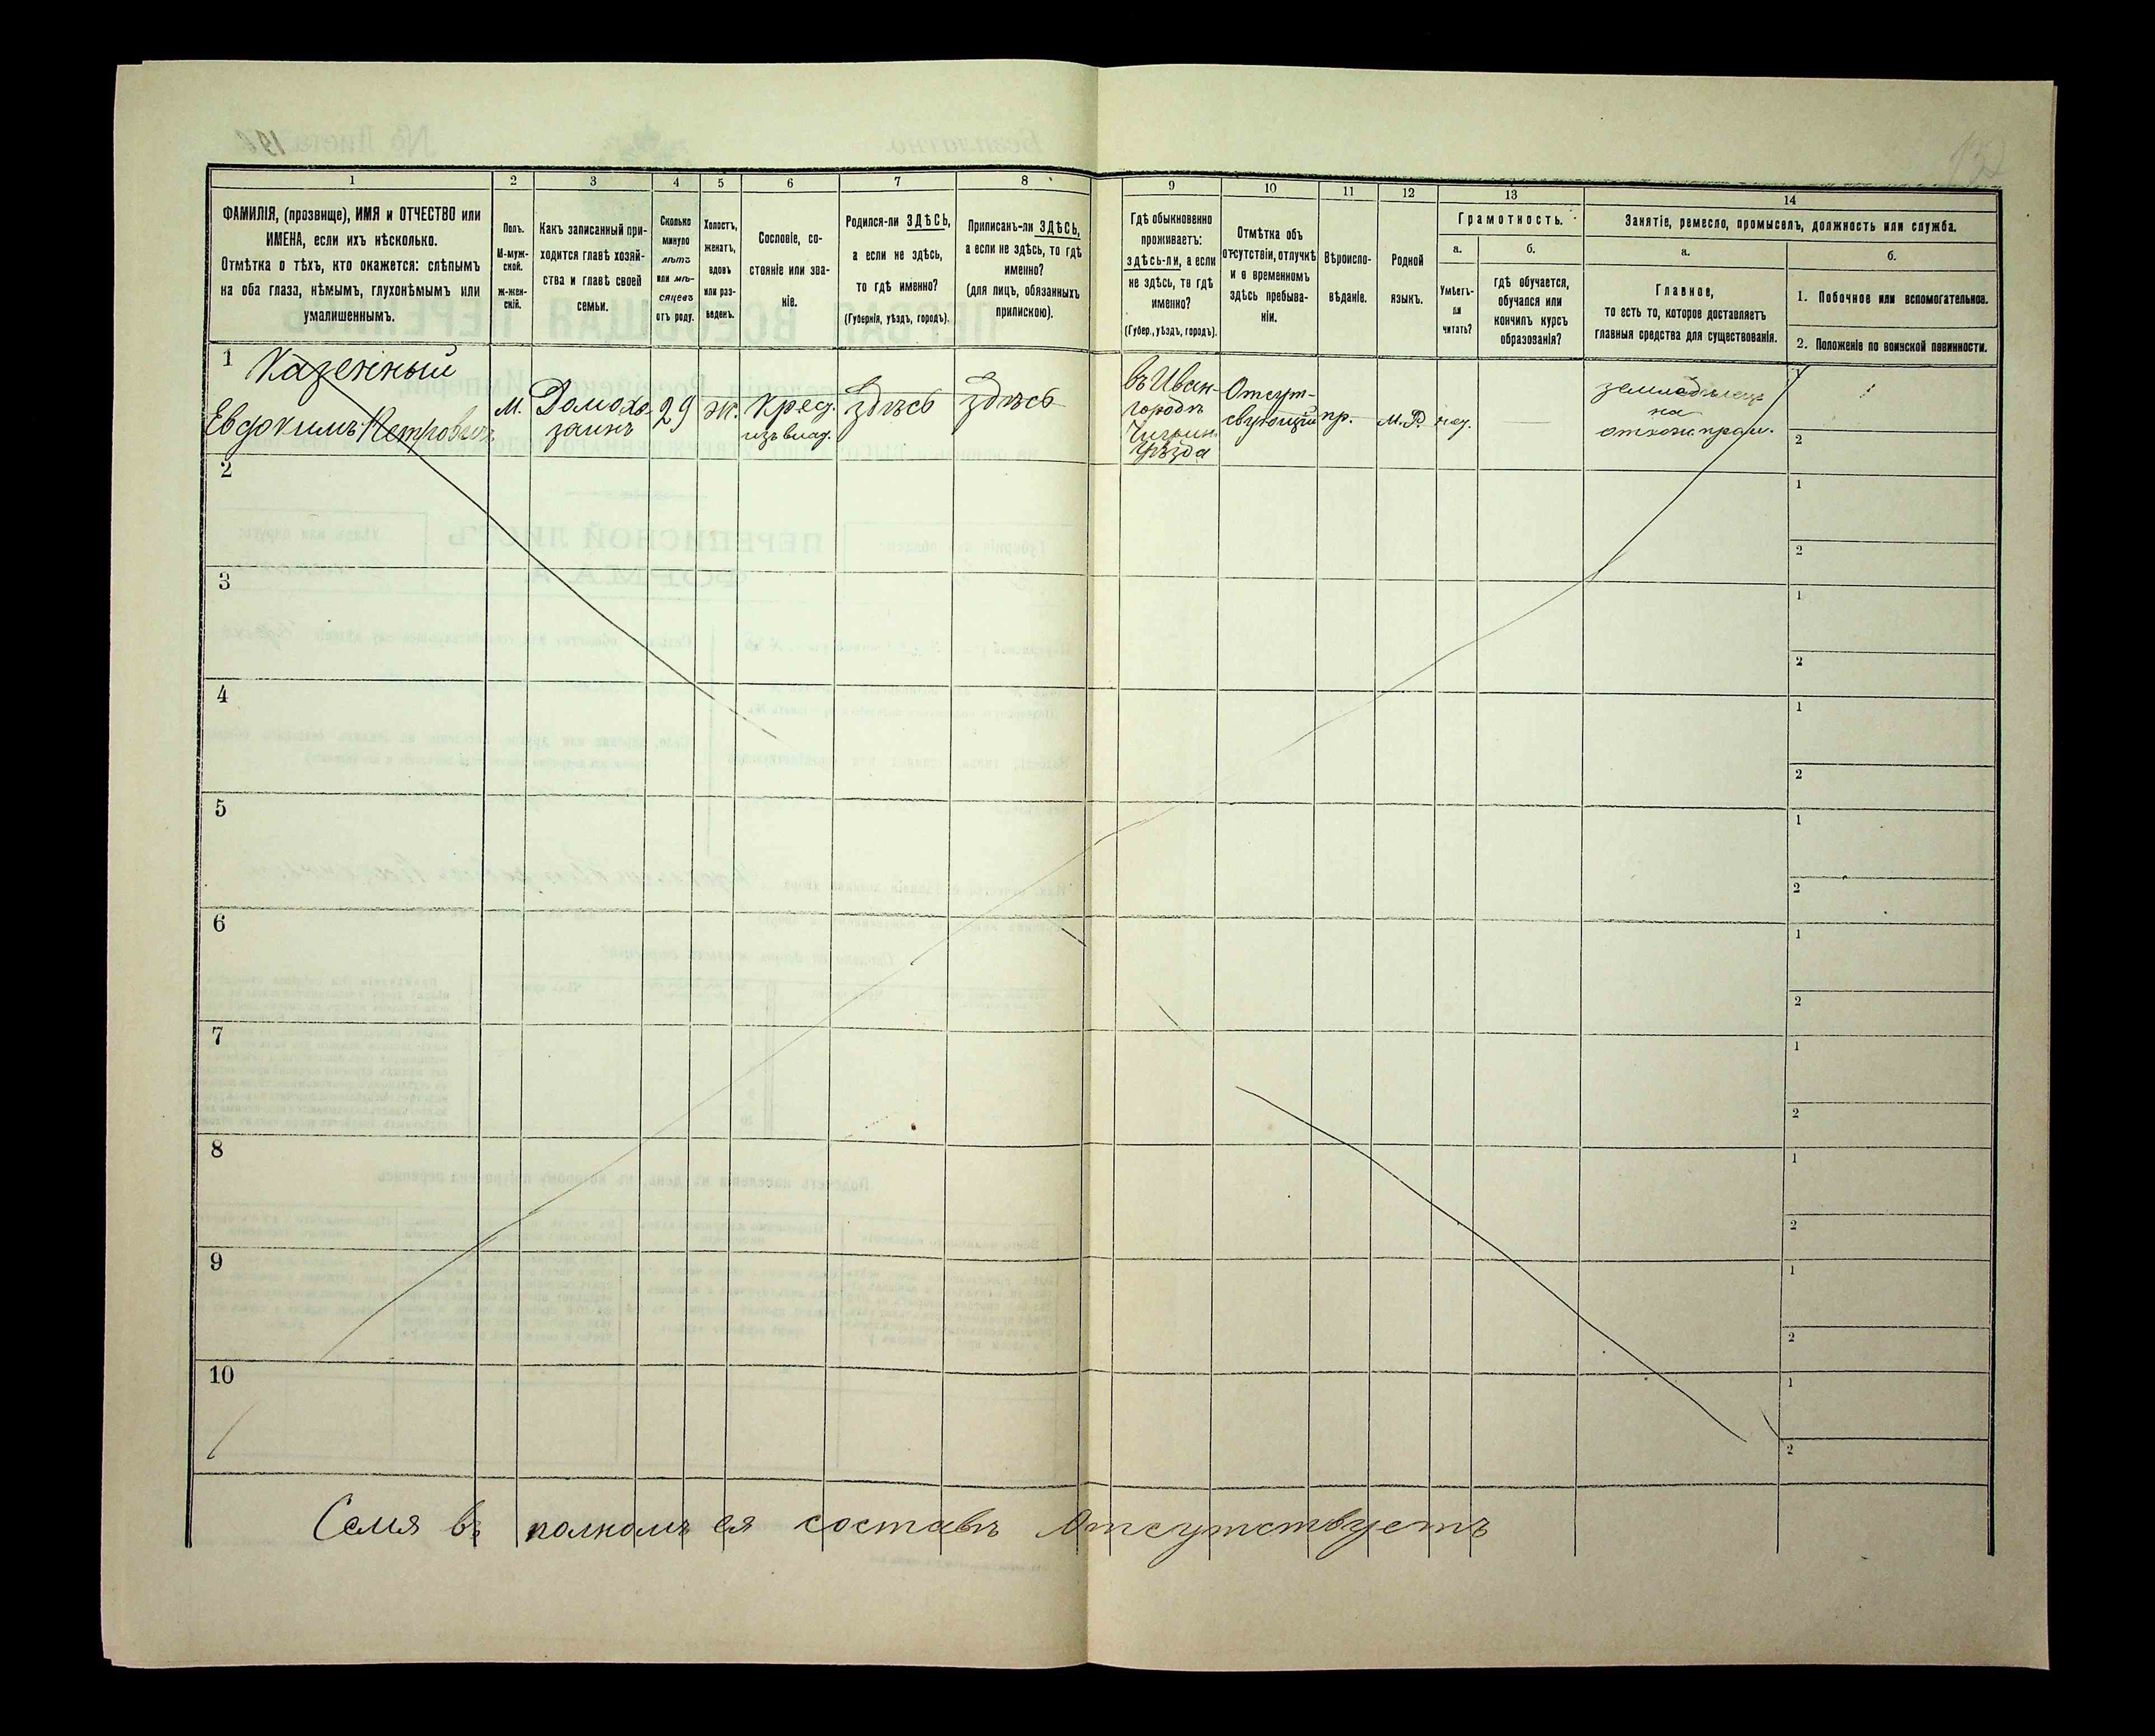 1
2
3
4
5
6
7
8
9
10
11
12
13
14
ФАМИЛІЯ, (прозвище), ИМЯ и ОТЧЕСТВО или
ИМЕНА, если ихъ нѣсколько.
Отмѣтка о тѣхъ, кто окажется: слѣпымъ
на оба глаза, нѣмымъ, глухонѣмымъ или
умалишеннымъ.
Полъ.
М-муж-
ской.
ж-жен-
скій.
Какъ записанный при-
ходится главѣ хозяй-
ства и главѣ своей
семьи.
Сколько
минуло
лѣтъ
или мѣ-
сяцевъ
отъ роду.
Холостъ,
женатъ,
вдовъ
или раз-
веденъ.
Сословіе, со-
стояніе или зва-
ніе.
Родился-ли ЗДѢСЬ,
а если не здѣсь,
то гдѣ именно?
(Губернія, уѣздъ, городъ).
Приписанъ-ли ЗДѢСЬ,
а если не здѣсь, то гдѣ
именно?
(для лицъ, обязанныхъ
припискою).
Гдѣ обыкновенно
проживаетъ:
здѣсь-ли, а если
не здѣсь, то гдѣ
именно?
(Губер., уѣздъ, городъ).
Отмѣтка объ
отсутствіи, отлучкѣ
и о временномъ
здѣсь пребыва-
ніи.
Вѣроиспо-
вѣданіе.
Родной
языкъ.
Грамотность.
а.
б.
Умѣетъ-
ли
читать?
гдѣ обучается,
обучался или
кончилъ курсъ
образованія?
Занятіе, ремесло, промыселъ, должность или служба.
а.
б.
Главное,
то есть то, которое доставляетъ
главныя средства для существованія.
1. Побочное или вспомогательное.
2. Положеніе по воинской повинности.
1
Казенный
Евдокимъ Петровичъ
м.
Домохо-
заинъ
29
ж.
Крес.
изъ влад.
здѣсь
здѣсь
въ Иван-
городѣ
уѣзда
Отсут-
ствующій
пр.
М.Р.
землодѣлецъ
на
1
2
2
1
2
3
1
2
4
1
2
5
1
2
6
1
2
7
1
2
8
1
2
9
1
2
10
1
2
Семя въ полномъ ея составѣ отсутствуетъ